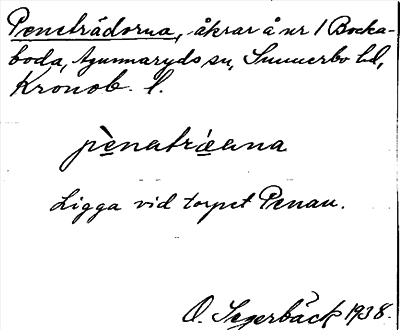 Penaträdorna, åkrar å nr 1 Bocka-
boda, Agunnaryds sn, Sunnerbo hd,
Kronob. l.
pènatrìeana
Ligga vid torpet Penau.
O. Segerbäck 1938.